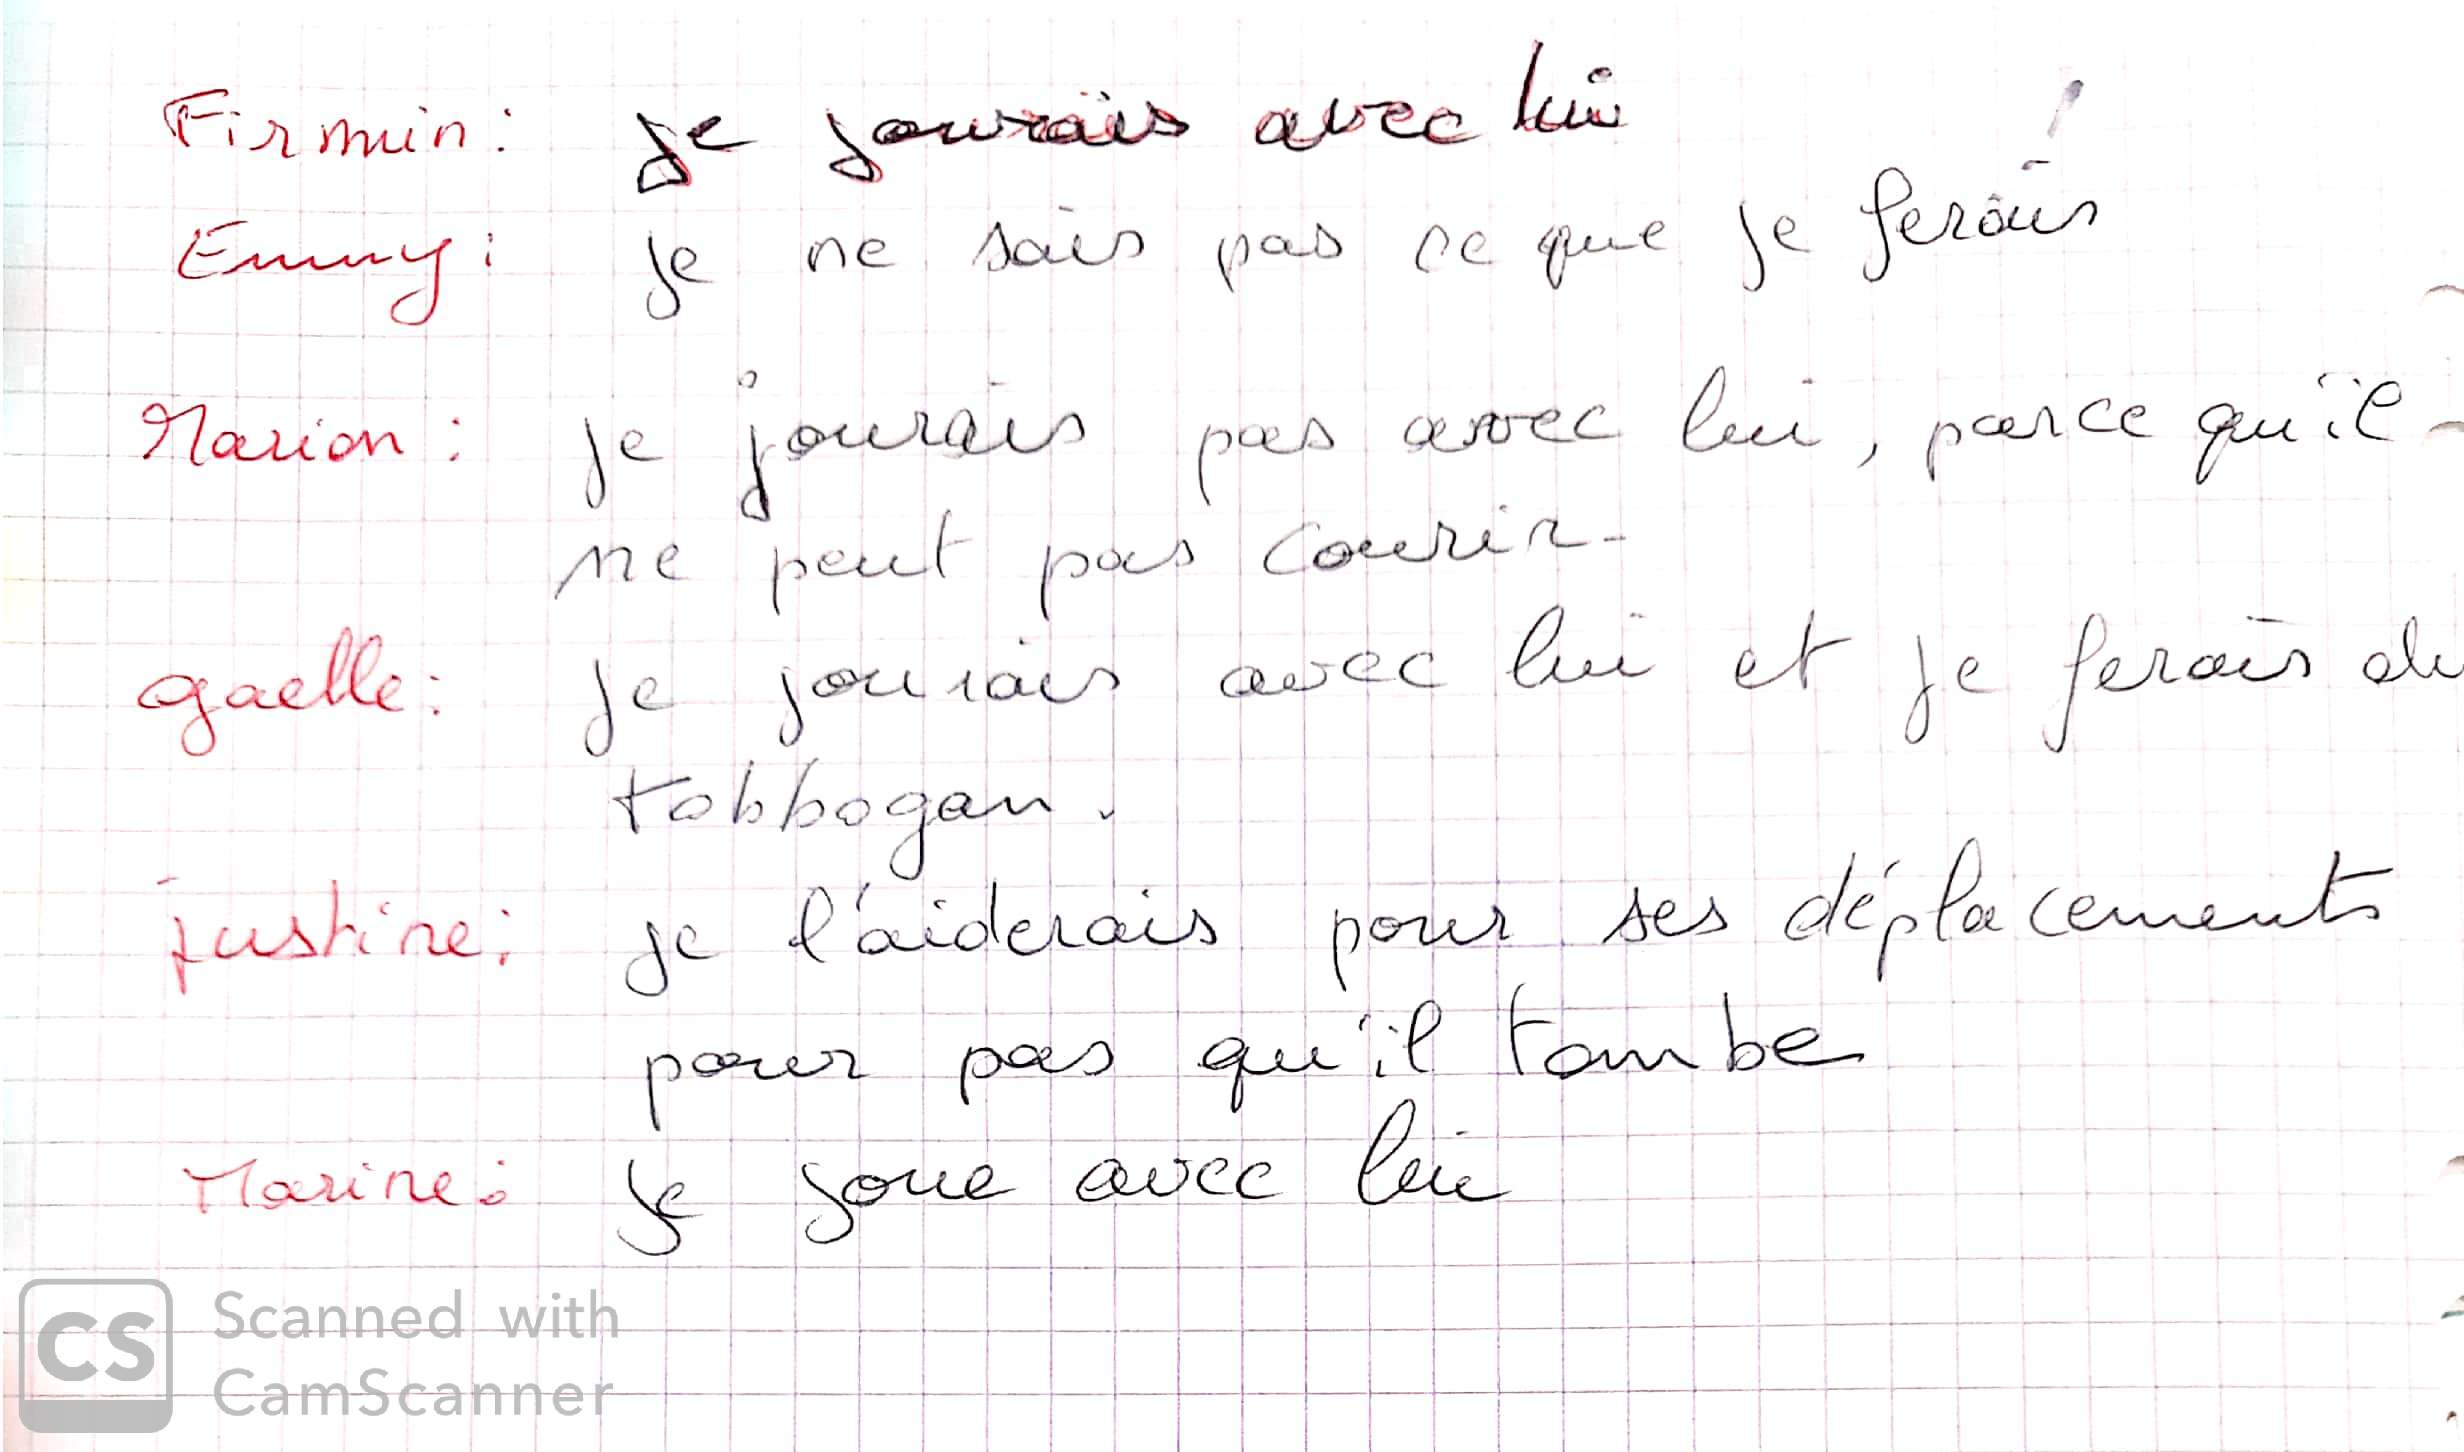 Firmin : je jourais avec lui
Emmy : je ne sais pas ce que je ferais
Marion : je jourais pas avec lui, parce qu'il
ne peut pas courir.
gaelle : je jourais avec lui et je ferais du
tobbogan.
justine : je l'aiderais pour ses déplacements
pour pas qu'il tombe
Marine : je joue avec lui
CS Scanned with
CamScanner